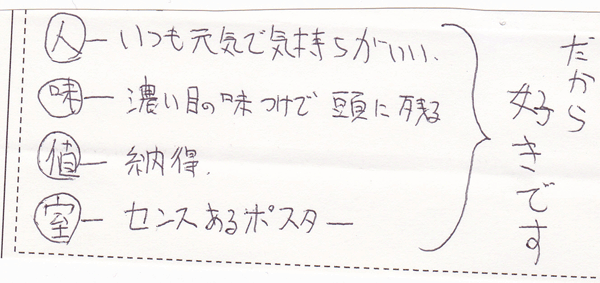 人ーいつも元気で気持ちがいい.
味ー濃い目の味つけで頭に残る
値ー納得.
室ーセンスあるポスター
だから
好きです